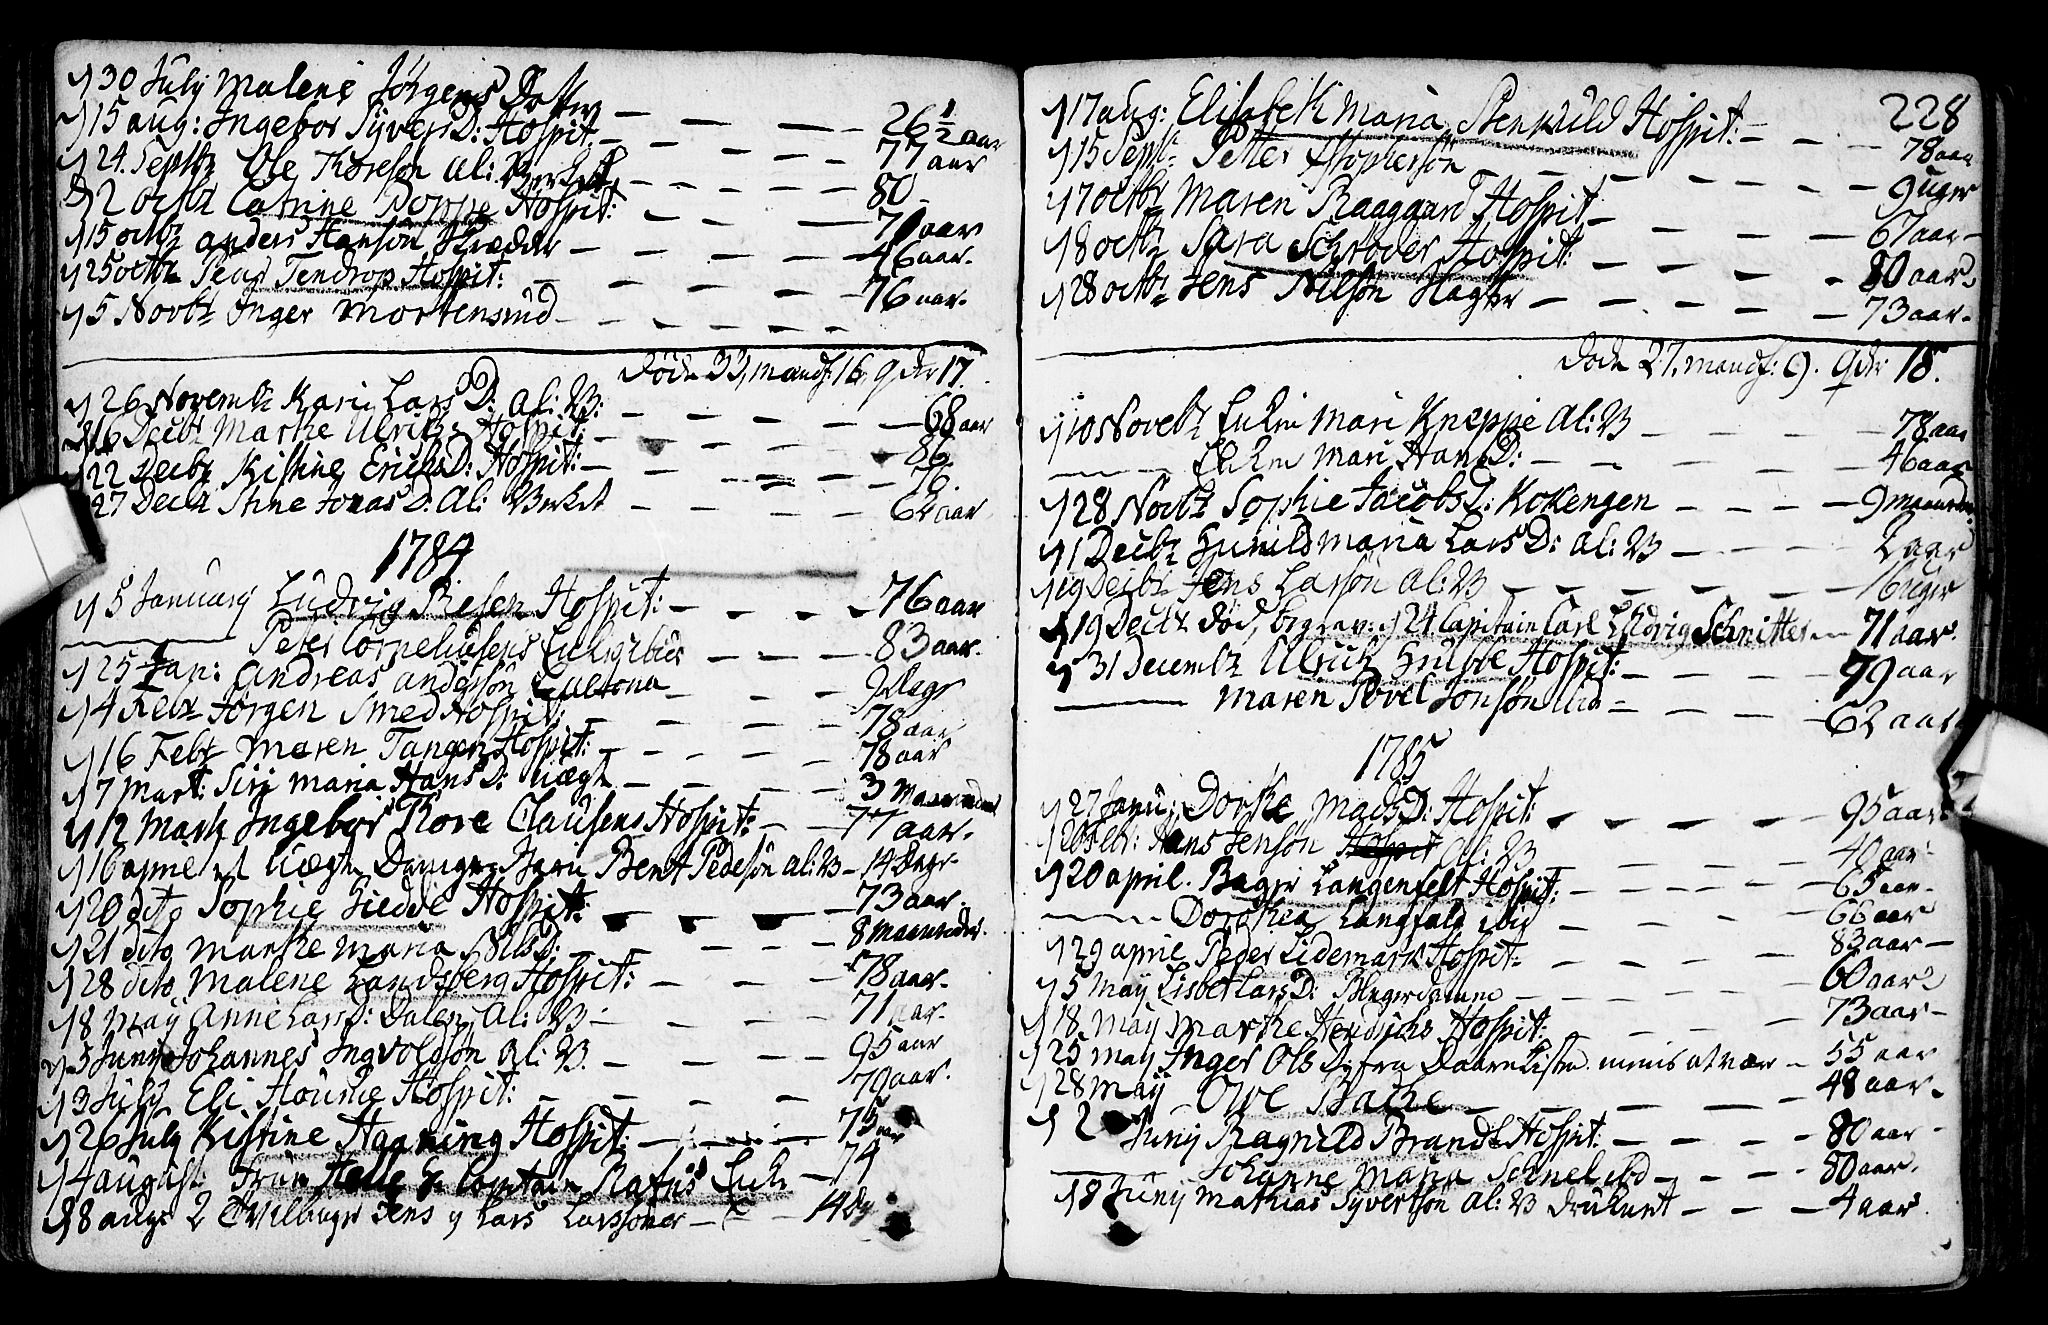 d 30 July Malene Jörgens Datter — 26 ½ aar
d 15 aug: Ingebor SyversD: Hospit — 77 aar
d 24. Septbr Ole Thoreson al: Verket — 80
d 2 octbr Catrine Poppe Hospit: — 70 aar
d 15 octbr anders Hanson Skredder — 46 aar.
d 25 octbr Tendrop Hospit: — 76 aar.
d 5 Novbr Inger Mortensrud
Döde 33, mandk: 16, qder 17.
d 26 Novembr Kari LarsD: al: V: — 68 aar
d 16 Decbr Marthe Ulrichs Hospit: — 86.
d 22 Decbr Kistine ErichsD: Hospit: — 76.
d 27 Decbr Stine JonasD: al: Verket — 62 aar
1784
d 5 January Ludvig Riesen Hospit: — 76 aar
— Peter Corneliusens Enke ibid — 83 aar.
d 25 Jan: Andreas anderson — 9 Dage
d 4 Febr Jörgen Smed Hospit: — 78 aar
d 16 Febr Maren Tangen Hospit: — 78 aar
d 7 Mart: Siri Maria HansD: uægte — 3 Maaneder
d 12 Marth Ingebor Thore Clausens Hospit: — 77 aar.
d 16 april et uægte Barn Bent Pederson al: V — 14 Dage
d 20 dito Sophie Hospit: — 73 aar.
d 21 dito Marthe Maria NilsD: — 8 Maaneder.
d 28 dito Malene Landsberg Hospit: — 78 aar.
d 8 May Anne LarsD: Dalen al: V: — 71 aar.
d 5 Juny Johannes Ingvoldson al: V. — 95 aar
d 3 July Eli Hospit: — 79 aar.
d 26 July Kistine Haaning Hospit: — 75 aar
d 4 august Frue Helle Sl: Capitain Enke — 74
d 8 aug: 2 Tvilbager Jens og Lars Larssöner — 14 Dag
228
d 17 aug: Elisabeth Maria Stenkuld Hospit: — 78 aar
d 15 Septbr Petter Christopherson — 9 uger
d 7 octbr Maren Raaggard Hospit — 67 aar
d 8 octbr Sara Schröder Hospit: — 80 aar
d 28 octbr Jens Nilson Hagter — 73 aar.
Döde 27. mandk: 9. qder 18.
d 10 Novebr Enken Mari Kneppe al: V — 78 aar
— Enken Mari HansD: — 46 aar
d 28 Novbr Sophie JacobsD: Kokengen — 9 maaneder
d 1 Decbr Gunild Maria LarsD: al: V — 2 aar
d 19 Decbr Jens Larson al: V — 16 uger
d 19 Decbr Död, begrav: d 24 Capitain Carl Ludvig Schnitter — 71 aar.
d 31 Decembr Ulrich Hospit: — 79 aar
— Maren Povel Jonson — 62 aar
1785
d 27 Janu: Dorthe MadsD: Hospit: — 95 aar
Febr: Hans Jenson Hospit al: V — 40 aar
d 20 april. Bager Langenfelt Hospit: — 65 aar
— Dorothea Langfeld ibid — 66 aar
d 29 april Peder Lidemark Hospit: — 83 aar
d 5 May Lisbet LarsD: — 60 aar
d 18 May Marthe Hendrichs Hospit: — 73 aar
d 25 May Inger OlsD: fra Daarekisten menis at vær — 55 aar
d 28 May Owe Bache — 48 aar.
d 2 Juny Ragnild Brandt Hospit: — 80 aar
— Johanne Maria Schnell ibid — 50 aar.
d 8 Juny Mathias Syvertson al: V druknet — 4 aar.